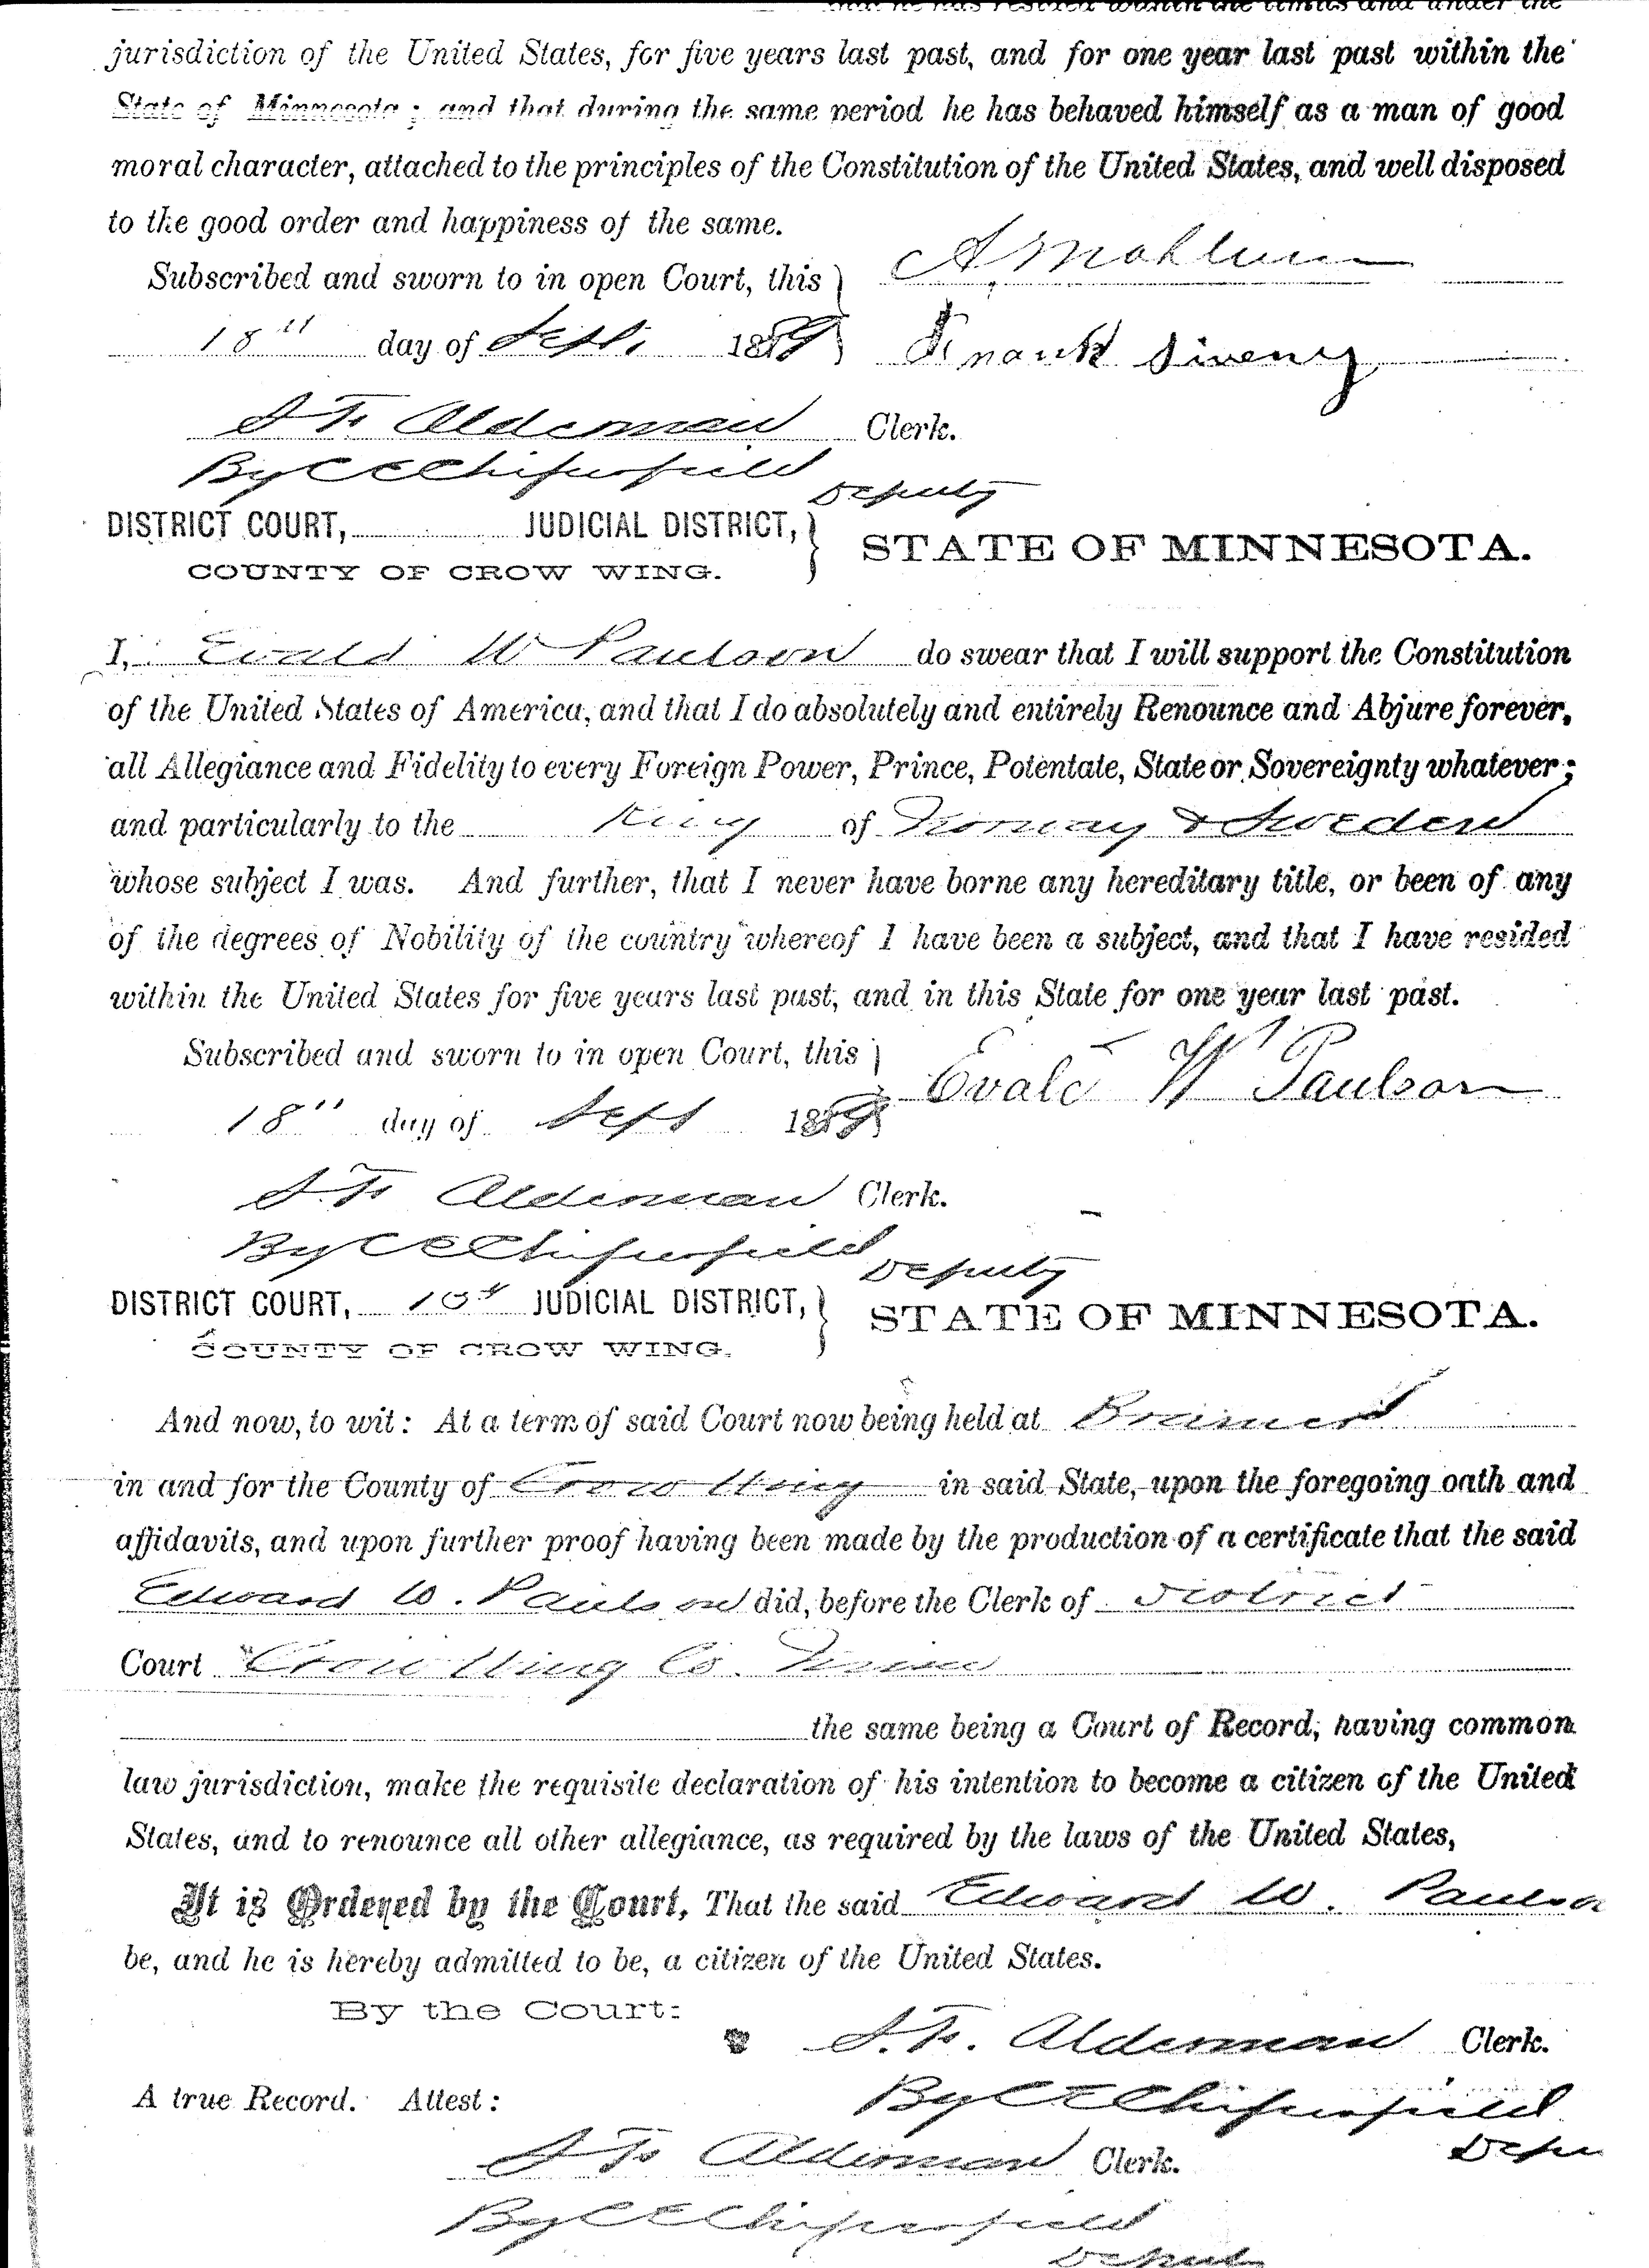 that he has resided within the limits and under the
jurisdiction of the United States, for five years last past, and for one year last past within the
State of Minnesota; and that during the same period he has behaved himself as a man of good
moral character, attached to the principles of the Constitution of the United States, and well disposed
to the good order and happiness of the same.
Subscribed and sworn to in open Court, this } A. Mahlum
18" day of Sept. 1889 } Frank
S. F. Alderman Clerk.
By C E Chiperfield Deputy
DISTRICT COURT, JUDICIAL DISTRICT, } STATE OF MINNESOTA.
COUNTY OF CROW WING.
I, Evald W Paulson do swear that I will support the Constitution
of the United States of America, and that I do absolutely and entirely Renounce and Abjure forever,
all Allegiance and Fidelity to every Foreign Power, Prince, Potentate, State or Sovereignty whatever;
and particularly to the King of Norway & Sweden
whose subject I was. And further, that I never have borne any hereditary title, or been of any
of the degrees of Nobility of the country whereof I have been a subject, and that I have resided
within the United States for five years last past, and in this State for one year last past.
Subscribed and sworn to in open Court, this } Evald W Paulson
18" day of Sept 1889 }
S. F. Alderman Clerk.
By C E Chiperfield Deputy
DISTRICT COURT, 10th JUDICIAL DISTRICT, } STATE OF MINNESOTA.
COUNTY OF CROW WING.
And now, to wit: At a term of said Court now being held at Brainerd
in and for the County of Crow Wing in said State, upon the foregoing oath and
affidavits, and upon further proof having been made by the production of a certificate that the said
Edward W. Paulson did, before the Clerk of District
Court Crow Wing Co. Minn
the same being a Court of Record, having common
law jurisdiction, make the requisite declaration of his intention to become a citizen of the United
States, and to renounce all other allegiance, as required by the laws of the United States,
It is Ordered by the Court, That the said Edward W. Paulso
be, and he is hereby admitted to be, a citizen of the United States.
By the Court:
S. F. Alderman Clerk.
A true Record. Attest: By C E Chiperfield Depu
S F Alderman Clerk.
By C E Chiperfield
Deputy